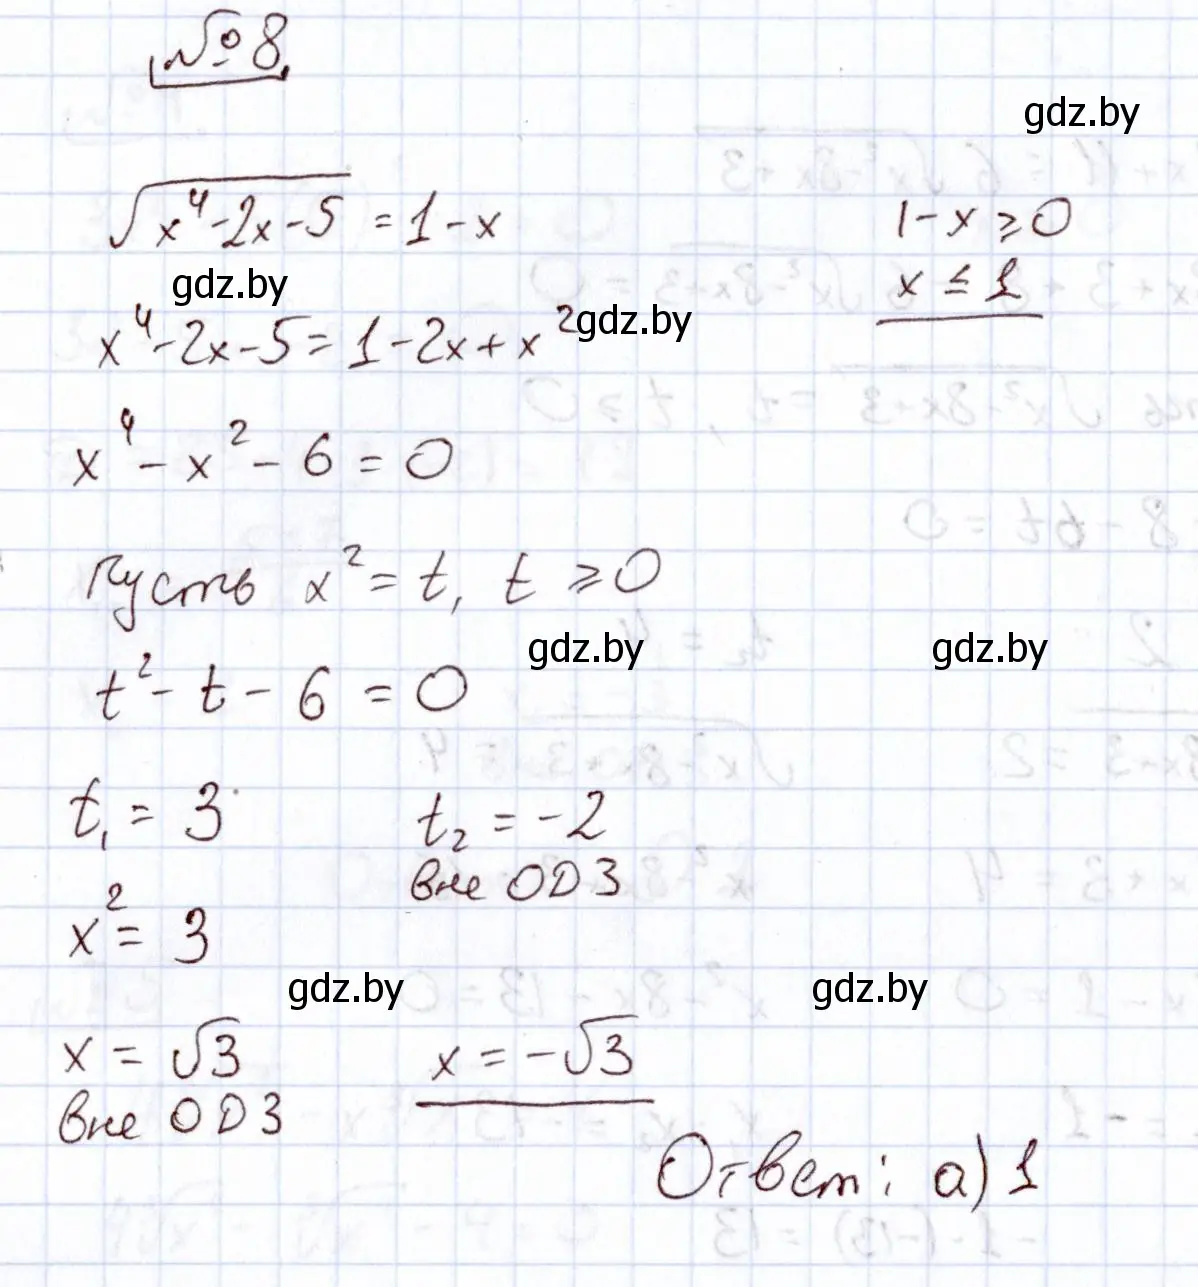 № 8
gdz.by
√(x⁴-2x-5) = 1-x
1-x ≥ 0
gdz.by
x ≤ 1
x⁴-2x-5=1-2x+x²
gdz.by
x⁴-x²-6=0
Пусть x²=t, t ≥ 0
gdz.by
gdz.by
t²-t-6=0
t₁ = 3
t₂ = -2
вне ОДЗ
x² = 3
gdz.by
gdz.by
x = √3
x = -√3
вне ОДЗ
Ответ: а) 1